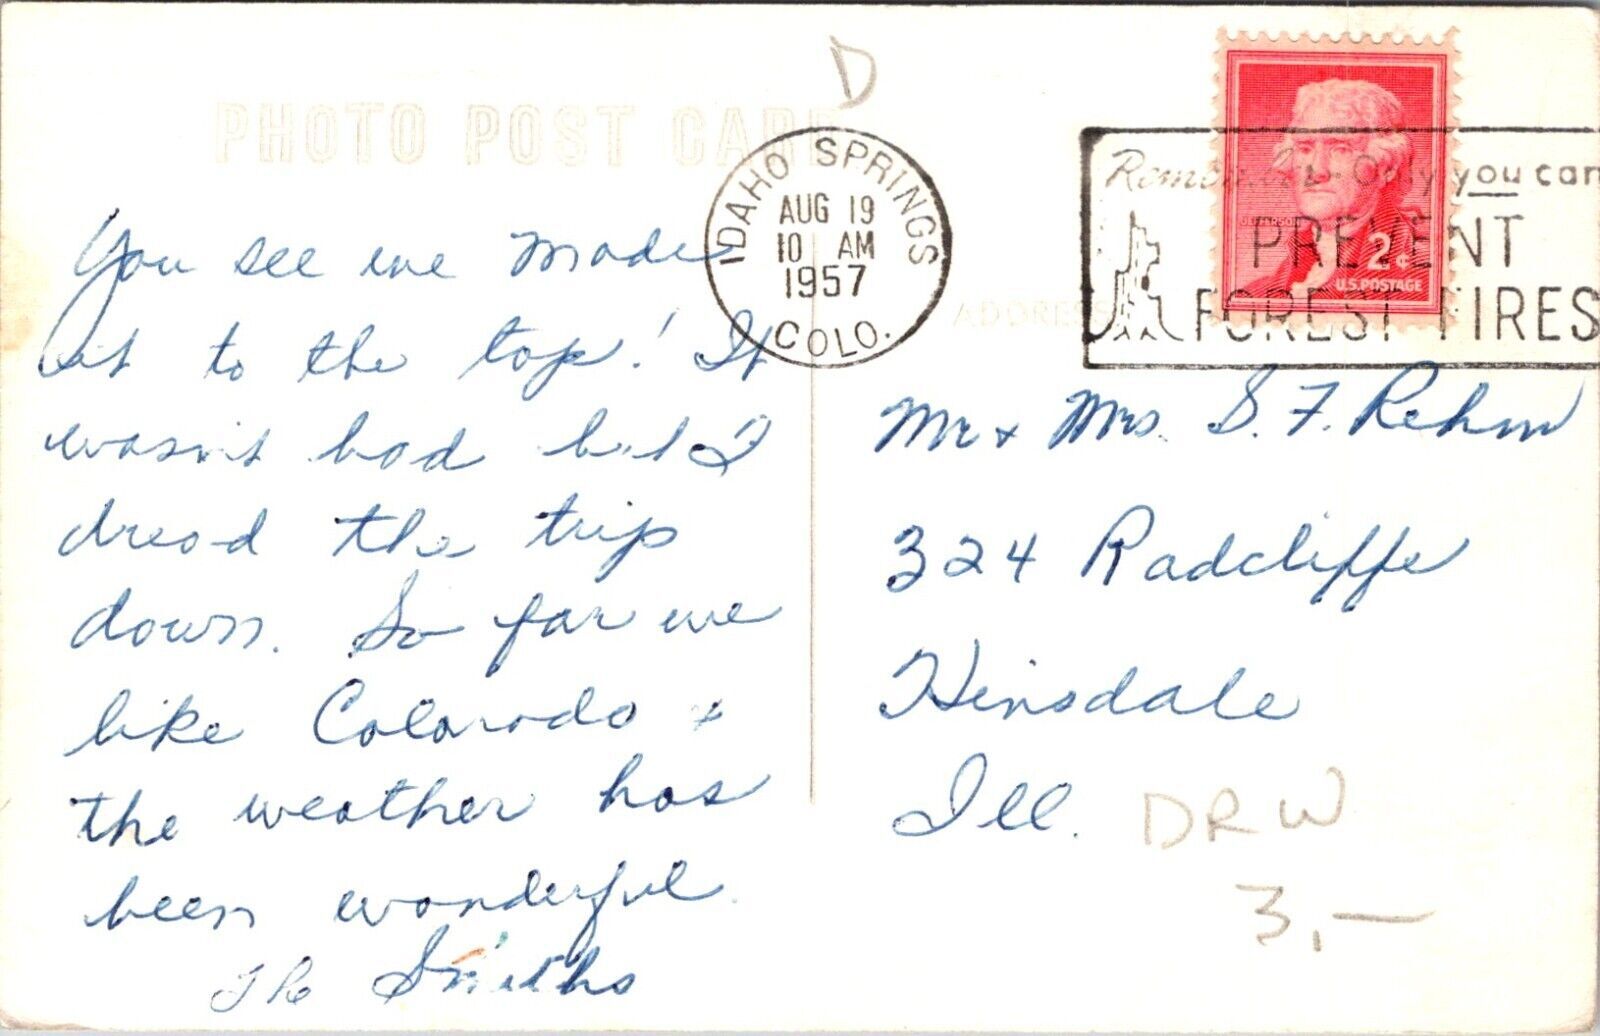 D
PHOTO POST CARD
IDAHO SPRINGS
AUG 19
10 AM
1957
COLO.
Remember Only you can
PREVENT
FOREST FIRES
JEFFERSON
2¢
U.S. POSTAGE
ADDRESS
You see we made
it to the top! It
wasn't bad but I
dread the trip
down. So far we
like Colorado +
the weather has
been wonderful.
The Smiths
Mr + Mrs. S. F. Rehm
324 Radcliffe
Hinsdale
Ill.
DRW
3,—